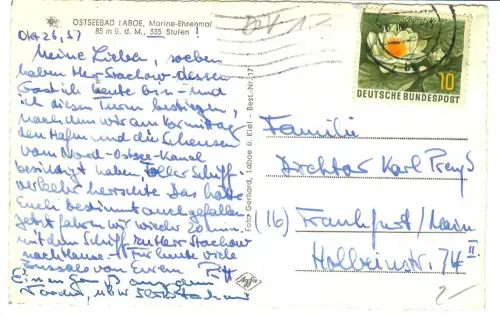 OSTSEEBAD LABOE, Marine-Ehrenmal
85 m ü. d. M., 335 Stufen!
Okt 26, 57
Meine Lieben, soeben
haben Herr Stachow-dessen
Gast ich heute bin-und
ich diesen Turm bestiegen,
nachdem wir am Vormittag
den Hafen und die Schleusen
vom Nord-Ostsee-Kanal
besichtigt haben, toller Schiff-
verkehr herrschte. Das hätte
Euch bestimmt auch gefallen
Jetzt fahren wir wieder
mit dem Schiff zu Herr Stachow
nach Hause. Für heute viele
von Eurem
Foto Gerhard, Laboe ü. Kiel - Best.-Nr. 17
Agfa
10
DEUTSCHE BUNDESPOST
Familie
Direktor Karl
(16) Frankfurt/Main
Holbeinstr. 74 II.
2-